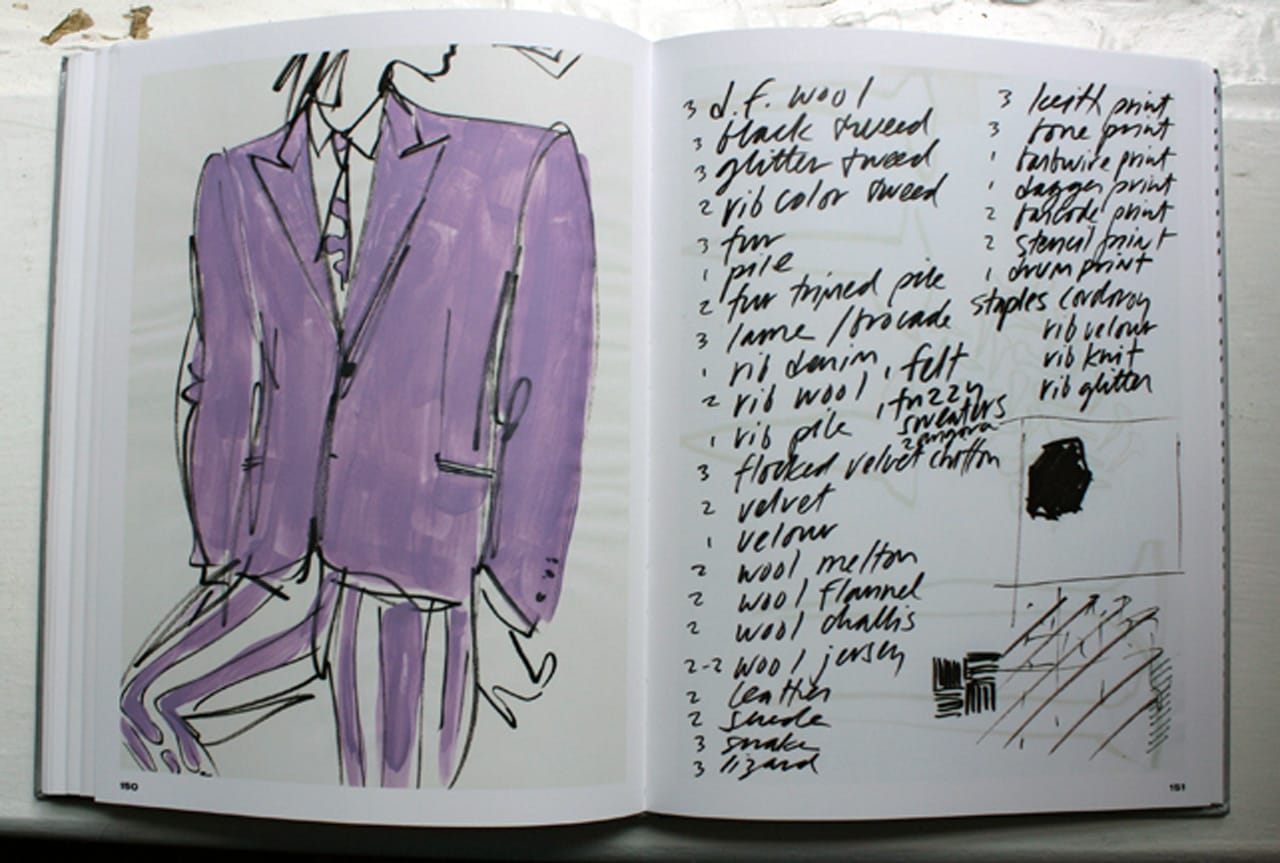 3 d.f. wool
3 black tweed
3 glitter tweed
2 rib color tweed
3 fur
1 pile
2 fur trimed pile
3 lame / brocade
1 rib denim
1 felt
2 rib wool
1 fuzzy sweaters
2 angora
1 rib pile
3 flocked velvet chiffon
2 velvet
1 velour
2 wool melton
2 wool flannel
2 wool challis
2-2 wool jersey
2 leather
2 suede
3 snake
3 lizard
3 keith print
3 bone print
1 barbwire print
1 dagger print
2 barcode print
2 stencil print
1 drum print
staples corduroy
rib velour
rib knit
rib glitter
150
151